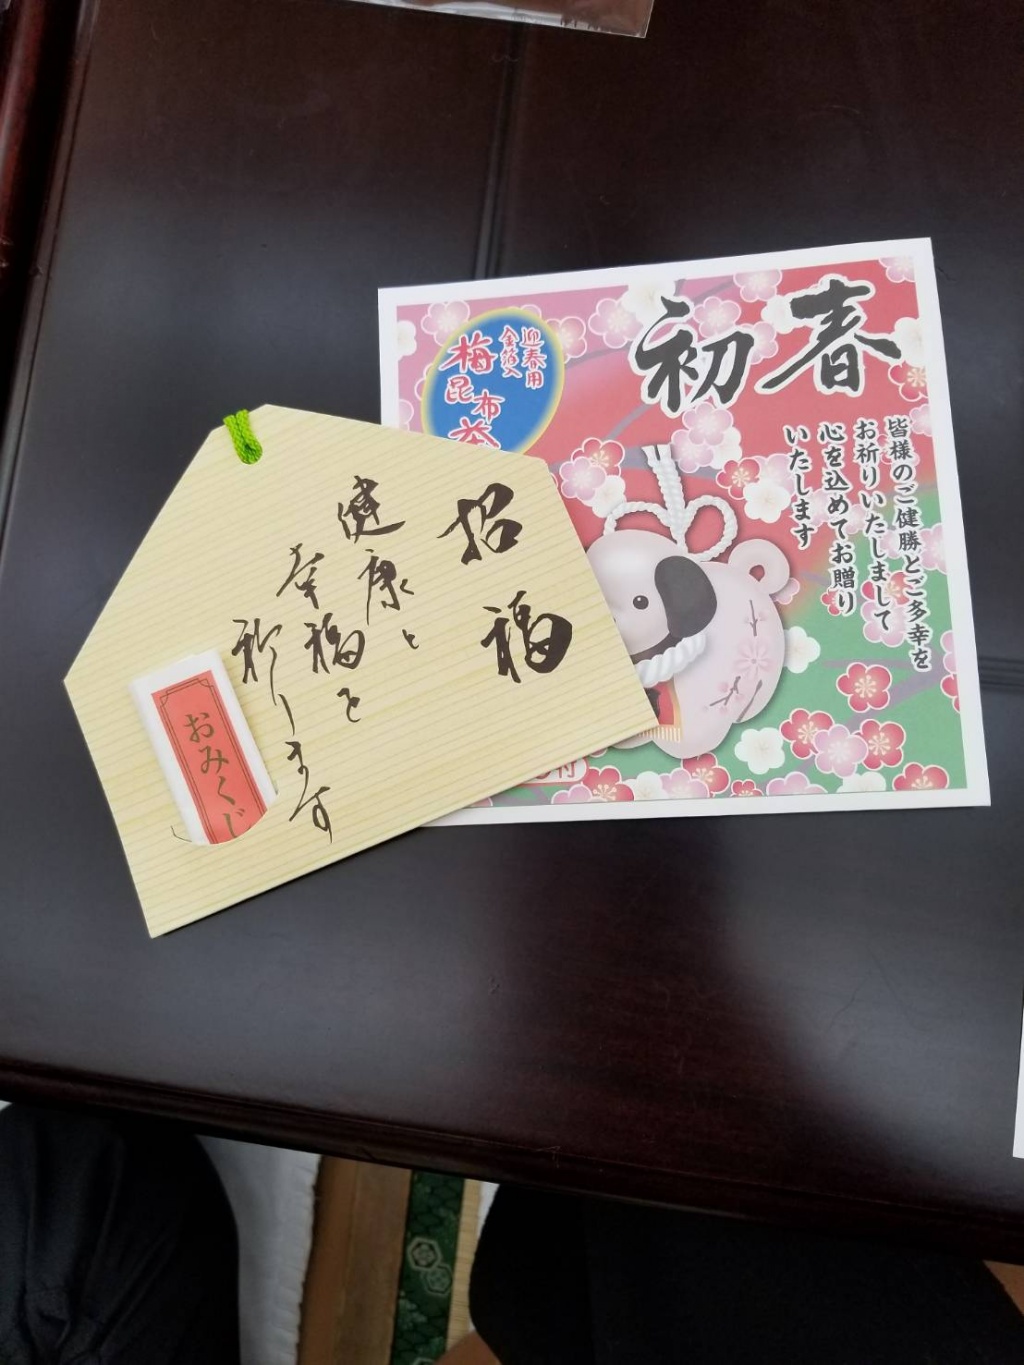 招福
健康と
幸福を
祈ります
おみくじ
初春
皆様のご健勝とご多幸を
お祈りいたしまして
心を込めてお贈り
いたします
迎春用
金箔入
梅昆布茶
付